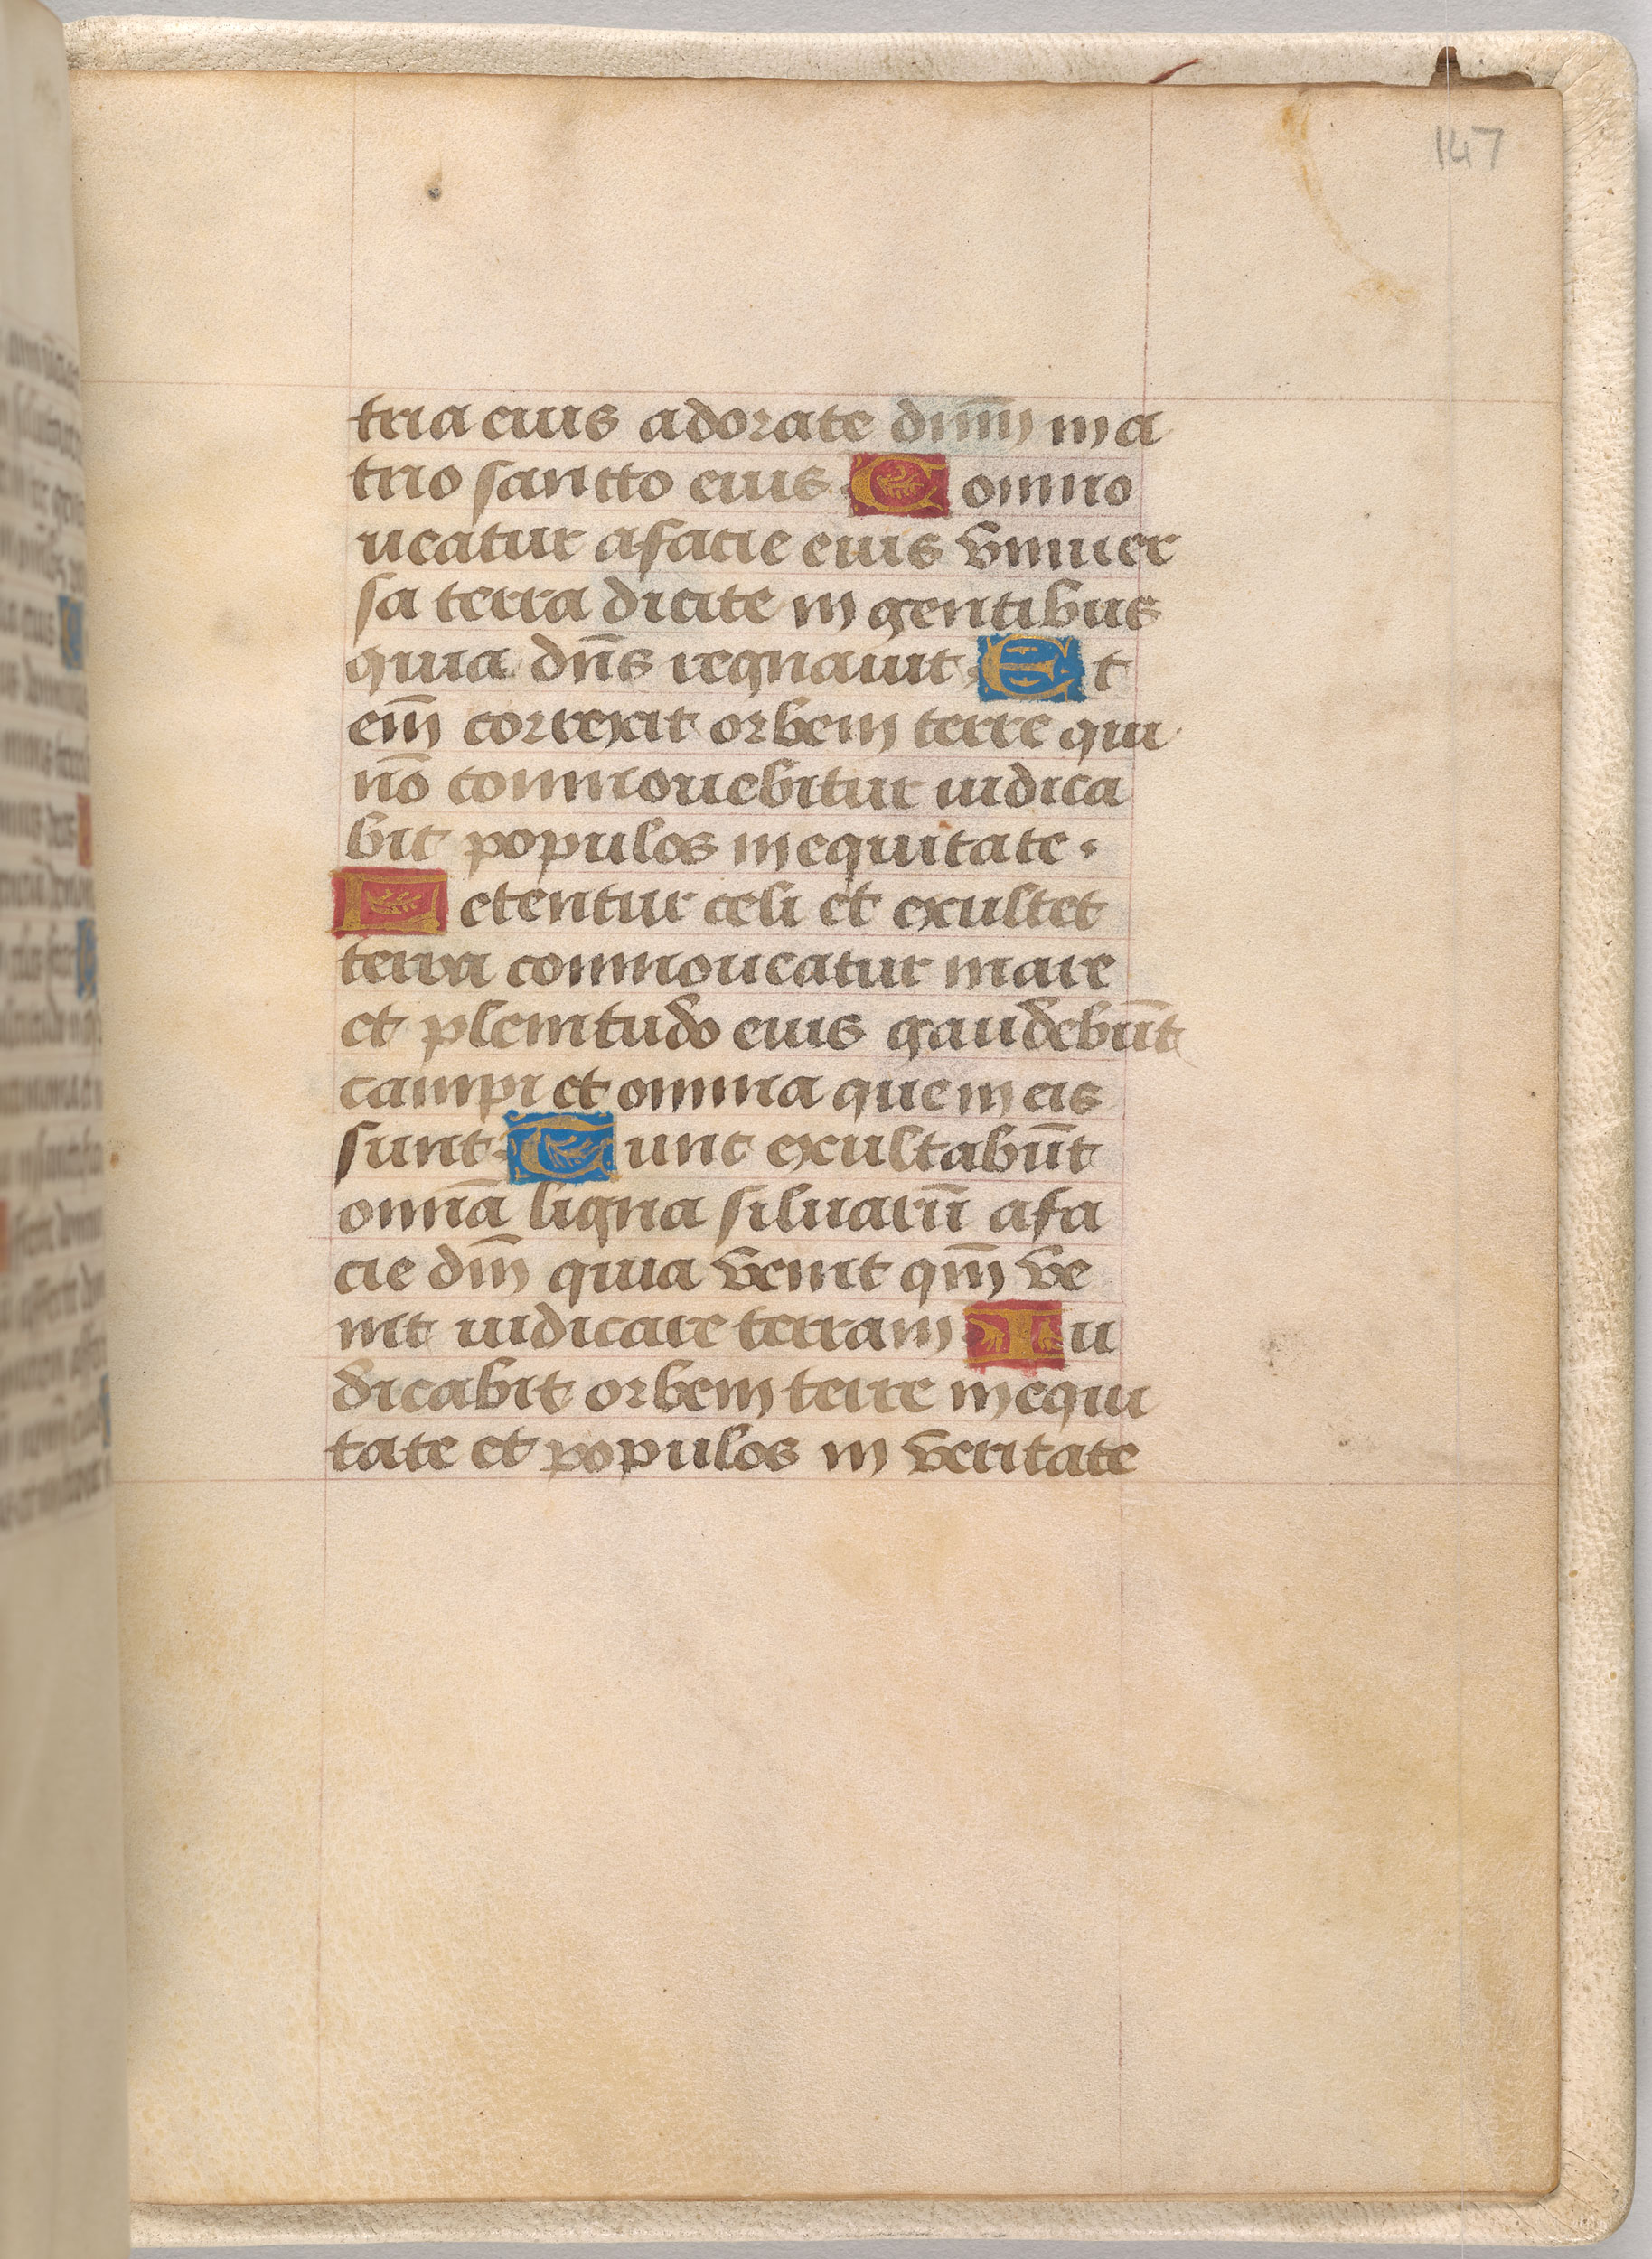 147
tria eius adorate dnm̄ in a
trio santto eius Commo
ueatur afacie eius vniuer
sa terra dicite in gentibus
quia dn̄s regnauit Et
em̄ correxit orbem terre qui
nō conmouebitur iudica
bit populos in equitate
Letentur celi et exultet
terra conmoueatur mare
et plenitudo eius gaudebūt
campi et omnia que in eis
sunt Tunc exultabūt
omīa ligna siluarū afa
cie dn̄i quia venit qm̄ ve
nit iudicare terram Iu
dicabit orbem terre in equi
tate et populos in veritate